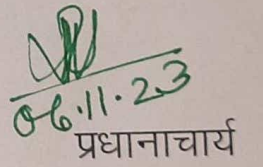 06.11.23
प्रधानाचार्य